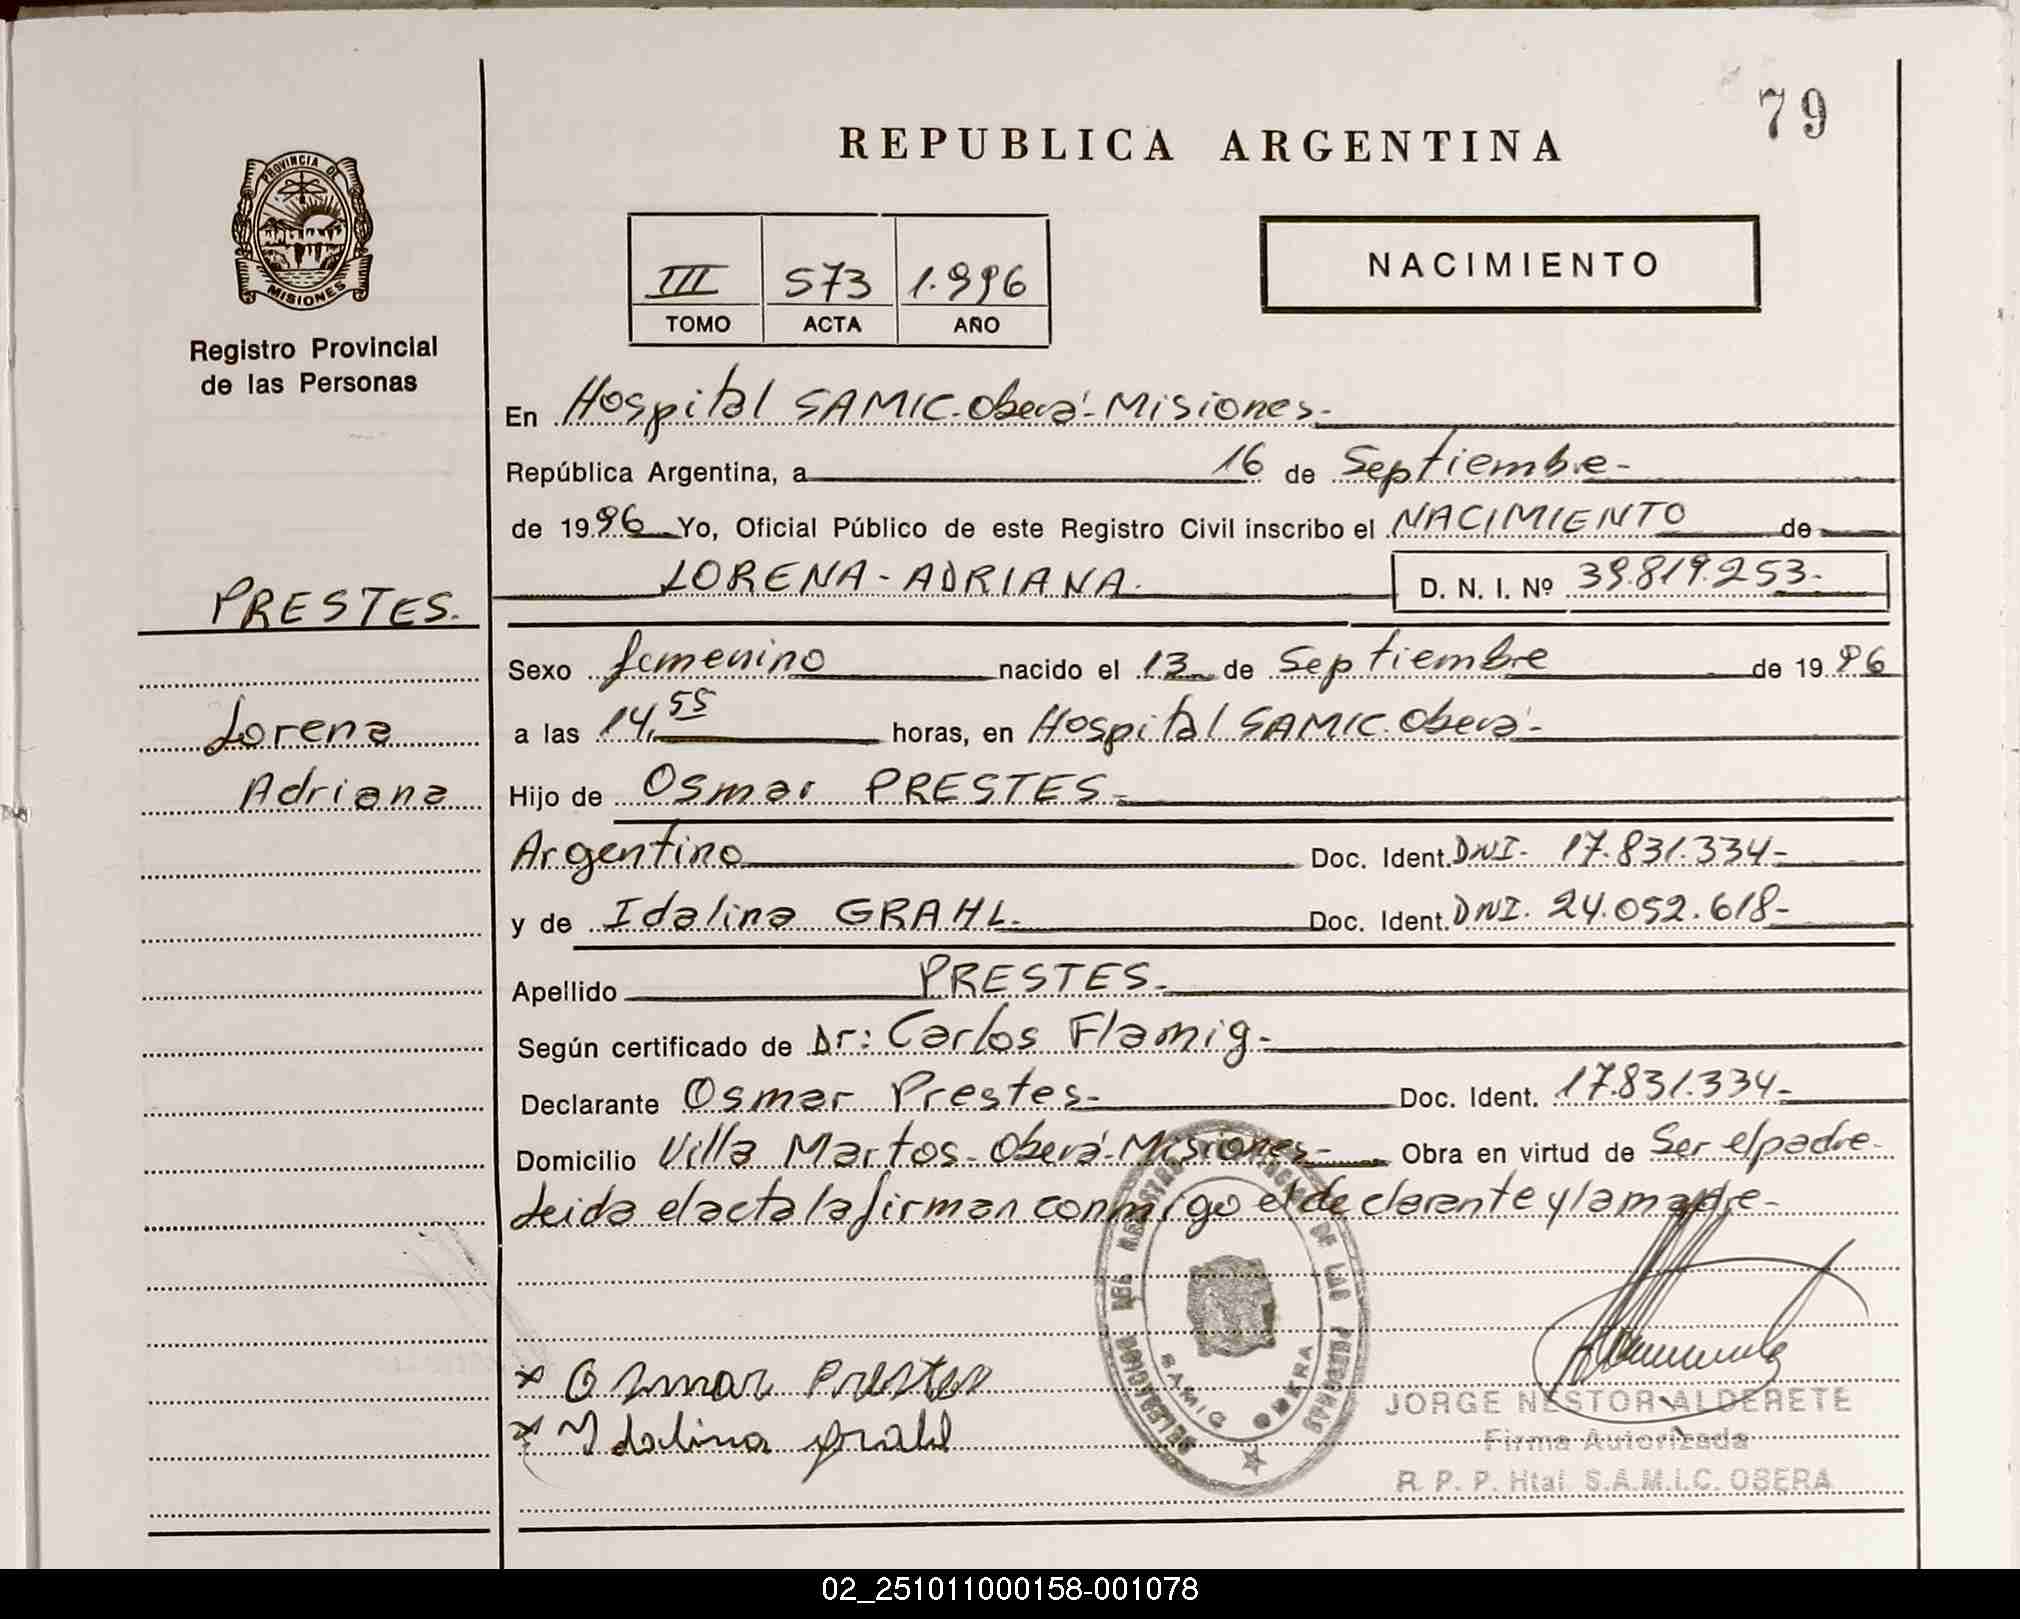 79
REPUBLICA ARGENTINA
PROVINCIA DE
MISIONES
Registro Provincial
de las Personas
III 573 1.996
TOMO ACTA AÑO
NACIMIENTO
En Hospital SAMIC. Oberá - Misiones -
República Argentina, a 16 de Septiembre -
de 1996 Yo, Oficial Público de este Registro Civil inscribo el NACIMIENTO de
LORENA - ADRIANA. D. N. I. Nº 39.819.253 -
PRESTES.
Lorena
Adriana
Sexo femenino nacido el 13 de Septiembre de 1996
a las 14,55 horas, en Hospital SAMIC. Oberá -
Hijo de Osmar PRESTES -
Argentino Doc. Ident. DNI - 17.831.334 -
y de Idalina GRAHL - Doc. Ident. DNI. 24.052.618 -
Apellido PRESTES -
Según certificado de Dr: Carlos Flamig -
Declarante Osmar Prestes - Doc. Ident. 17.831.334 -
Domicilio Villa Martos - Oberá - Misiones - Obra en virtud de Ser el padre -
Leida el acta la firman conmigo el declarante y la madre -
DELEGACION DEL REGISTRO PROVINCIAL DE LAS PERSONAS
SAMIC OBERA
x Osmar Prestes
x Idalina grahl
JORGE NESTOR ALDERETE
Firma Autorizada
R. P. P. Htal. S.A.M.I.C. OBERA
02_251011000158-001078